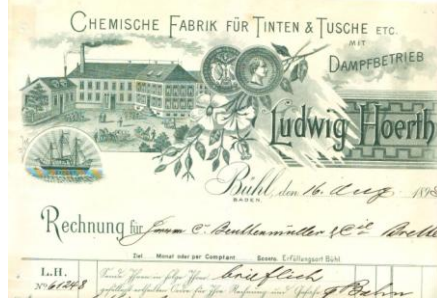 CHEMISCHE FABRIK FÜR TINTEN & TUSCHE ETC.
MIT
DAMPFBETRIEB
Ludwig Hoerth
Bühl, den 16. Aug. 189
BADEN.
Rechnung für Herrn C. Beuttenmüller & Cie Bretten
Ziel Monat oder per Comptant. Beders. Erfüllungsort Bühl
L.H.
No 61248
Sende Ihnen in folge Ihrer brieflich
Bahn